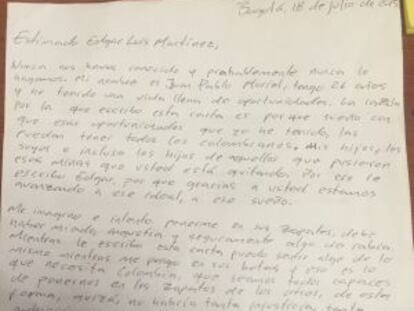 Bogotá, 18 de julio de 2015
Estimado Edgar Luis Martínez,
Nunca nos hemos conocido y probablemente nunca lo
hagamos. Mi nombre es Juan Pablo Muriel, tengo 26 años
y he tenido una vida llena de oportunidades. La razón
por la que escribo esta carta es por que sueño con
que esas oportunidades que yo he tenido, las
puedan tener todos los colombianos. Mis hijos, los
suyos e incluso los hijos de aquellos que pusieron
esas minas que usted está quitando. Por eso le
escribo Edgar, por que gracias a usted estamos
avanzando a ese ideal, a ese sueño.
Me imagino e intento ponerme en sus zapatos, debe
haber miedo, angustia y seguramente algo de rabia.
Mientras le escribo esta carta puedo sentir algo de lo
mismo mientras me pongo en sus botas y eso es lo
que necesita Colombia, que seamos todos capaces
de ponernos en los zapatos de los otros, de esta
forma, quizá, no habría tanta injusticia, tanta